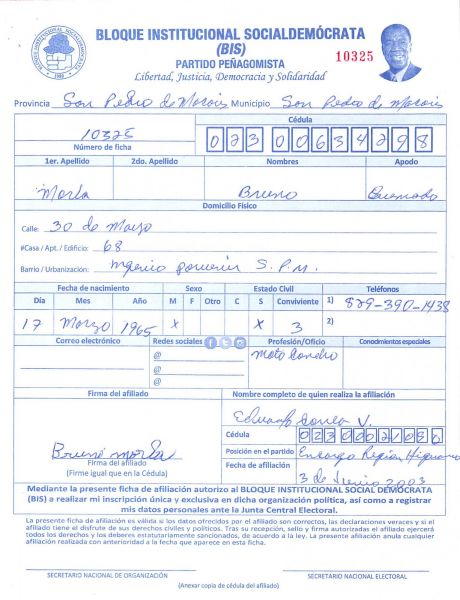 BLOQUE INSTITUCIONAL SOCIALDEMÓCRATA
(BIS)
PARTIDO PEÑAGOMISTA
10325
Libertad, Justicia, Democracia y Solidaridad
Provincia San Pedro de Macoris Municipio San Pedro de Macoris
Cédula
10325
Número de ficha
1er. Apellido 2do. Apellido Nombres Apodo
Morla Bruno
Domicilio Físico
Calle: 30 de Marzo
#Casa / Apt. / Edificio: 68
Barrio / Urbanización: S.P.M.
Fecha de nacimiento Sexo Estado Civil Teléfonos
Día Mes Año M F Otro C S Conviviente 1) 829-390-1438
17 Marzo 1965 X X 3 2)
Correo electrónico Redes sociales Profesión/Oficio Conocimientos especiales
@ Moto Concho
@
@
Firma del afiliado Nombre completo de quien realiza la afiliación
Eduardo V.
Cédula
Bruno Morla
Firma del afiliado
(Firme igual que en la Cédula)
Posición en el partido Encargo Region
Fecha de afiliación
3 de Junio 2003
Mediante la presente ficha de afiliación autorizo al BLOQUE INSTITUCIONAL SOCIAL DEMÓCRATA
(BIS) a realizar mi inscripción única y exclusiva en dicha organización política, así como a registrar
mis datos personales ante la Junta Central Electoral.
La presente ficha de afiliación es válida si los datos ofrecidos por el afiliado son correctos, las declaraciones veraces y si el afiliado
tiene el disfrute de sus derechos civiles y políticos. Tras su recepción, sello y firma autorizadas el afiliado ejercerá
todos los derechos y los deberes estatutariamente sancionados, de acuerdo a la ley. La presente afiliación anula cualquier
afiliación realizada con anterioridad a la fecha que aparece en esta ficha.
SECRETARIO NACIONAL DE ORGANIZACIÓN SECRETARIO NACIONAL ELECTORAL
(Anexar copia de cédula del afiliado)